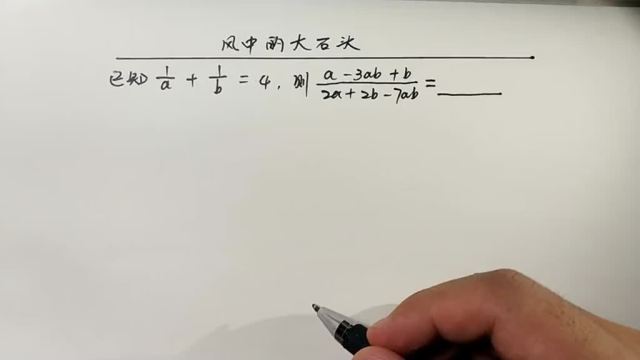 风中的大石头
已知 1/a + 1/b = 4, 则 (a - 3ab + b)/(2a + 2b - 7ab) = ______